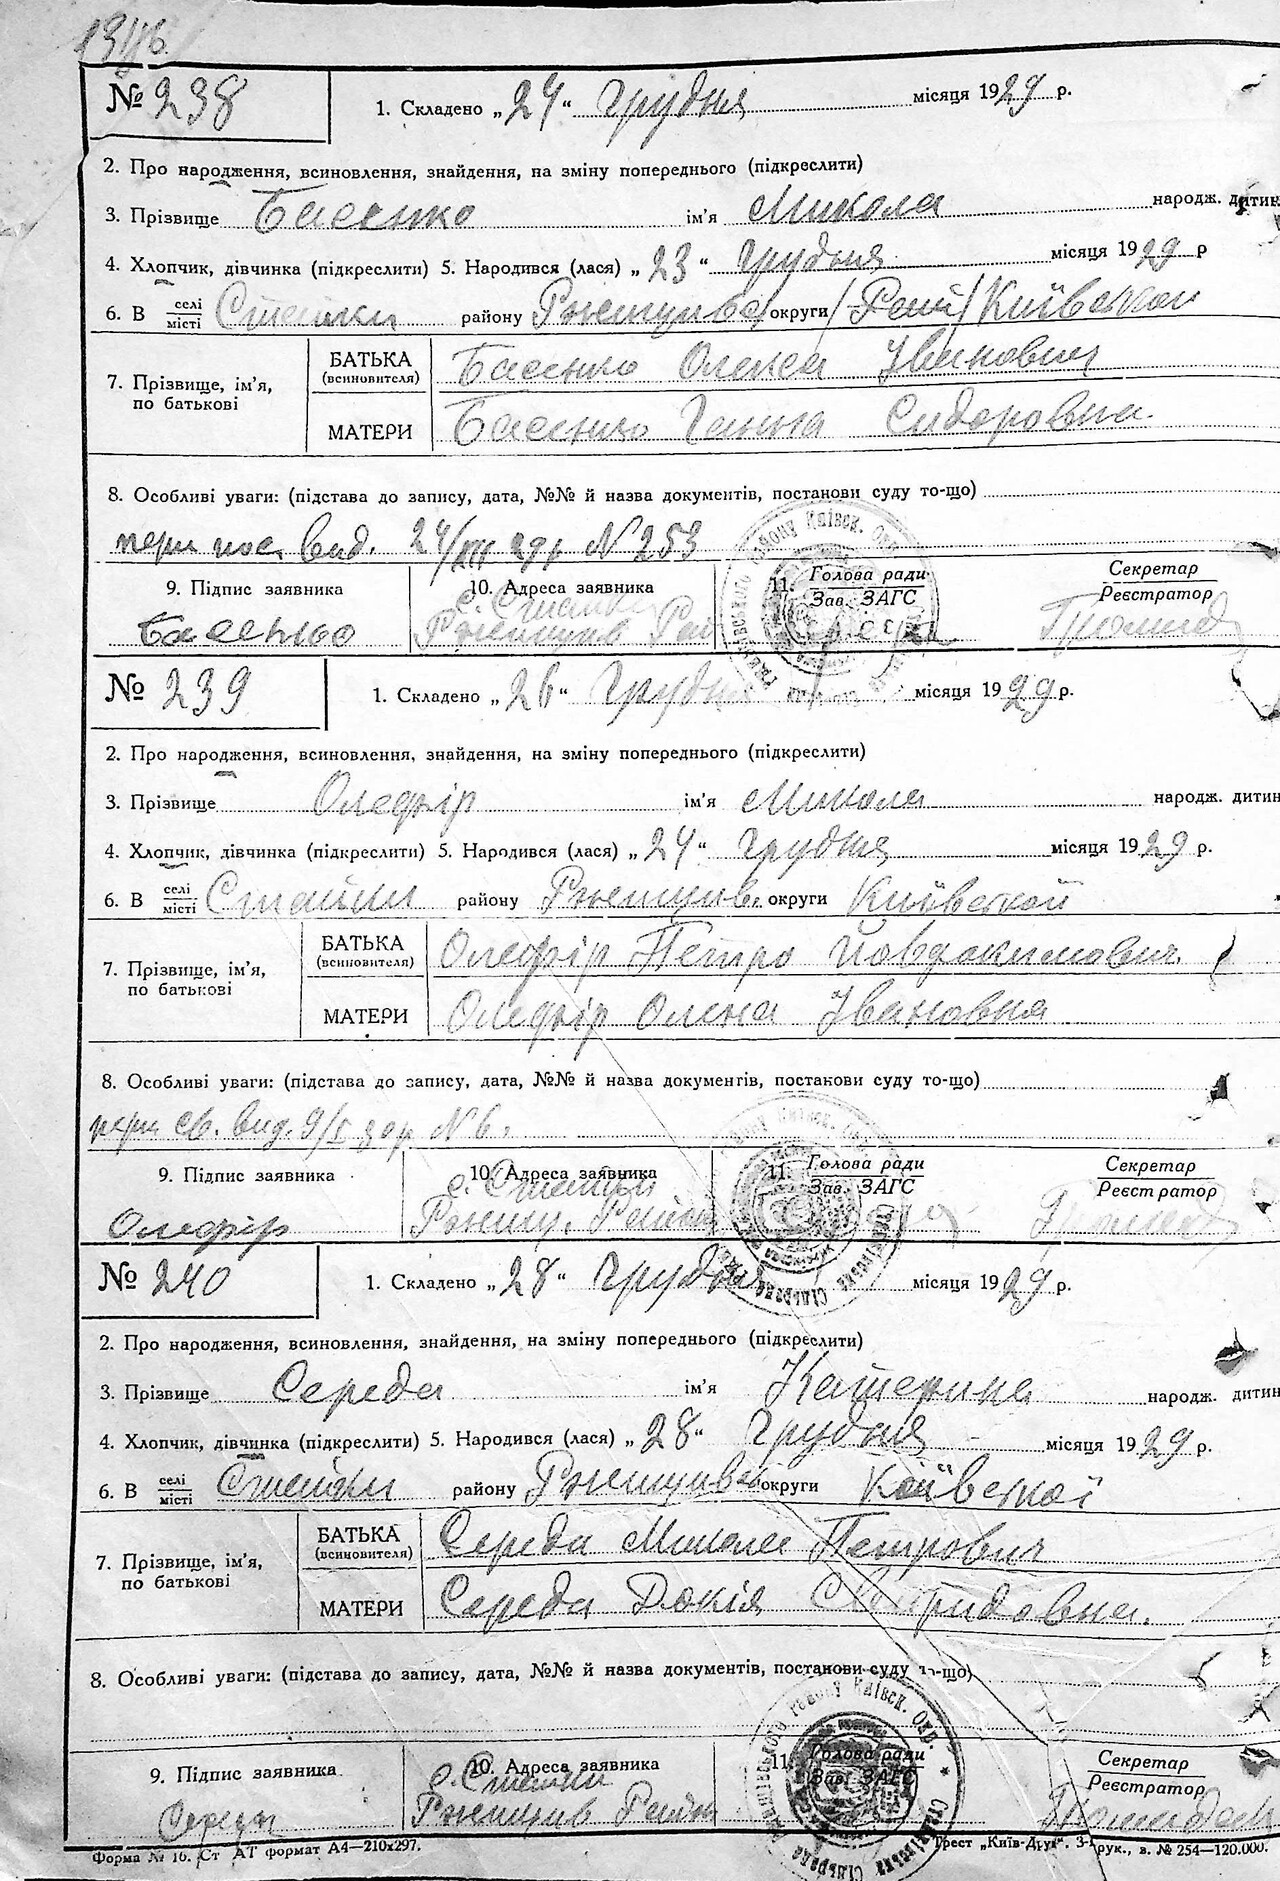 № 238 1. Складено „24“ грудня місяця 1929 р.
2. Про народження, всиновлення, знайдення, на зміну попереднього (підкреслити)
3. Прізвище Басенко ім'я Микола народж. дитин
4. Хлопчик, дівчинка (підкреслити) 5. Народився (лася) „23“ грудня місяця 1929 р
6. В селі/місті Стайки району Ржищивс округи Київської
7. Прізвище, ім'я, по батькові БАТЬКА (всиновителя) Басенко Олекса Іванович
МАТЕРИ Басенко Ганна Сидоровна
8. Особливі уваги: (підстава до запису, дата, №№ й назва документів, постанови суду то-що)
вид. 24/XII 29 р N 253
9. Підпис заявника 10. Адреса заявника 11. Голова ради Секретар
Зав. ЗАГС Реєстратор
Басенко с. Стайки Ржищив Рай
№ 239 1. Складено „26“ грудня місяця 1929 р.
2. Про народження, всиновлення, знайдення, на зміну попереднього (підкреслити)
3. Прізвище Олефір ім'я Микола народж. дитин
4. Хлопчик, дівчинка (підкреслити) 5. Народився (лася) „24“ грудня місяця 1929 р.
6. В селі/місті Стайки району Ржищив. округи Київської
7. Прізвище, ім'я, по батькові БАТЬКА (всиновителя) Олефір Петро Йовдокимович
МАТЕРИ Олефір Олена Івановна
8. Особливі уваги: (підстава до запису, дата, №№ й назва документів, постанови суду то-що)
св. вид. 9/I 30 р N 6.
9. Підпис заявника 10. Адреса заявника 11. Голова ради Секретар
Зав. ЗАГС Реєстратор
Олефір с. Стайки Ржищ. Район
№ 240 1. Складено „28“ грудня місяця 1929 р.
2. Про народження, всиновлення, знайдення, на зміну попереднього (підкреслити)
3. Прізвище Середа ім'я Катерина народж. дитин
4. Хлопчик, дівчинка (підкреслити) 5. Народився (лася) „28“ грудня місяця 1929 р.
6. В селі/місті Стайки району Ржищивськ округи Київської
7. Прізвище, ім'я, по батькові БАТЬКА (всиновителя) Середа Микола Петрович
МАТЕРИ Середа Докія Свиридовна.
8. Особливі уваги: (підстава до запису, дата, №№ й назва документів, постанови суду то-що)
9. Підпис заявника 10. Адреса заявника 11. Голова ради Секретар
Зав. ЗАГС Реєстратор
Середа с. Стайки Ржищив Район
Форма № 16. Ст АТ формат А4—210x297. Трест „Київ-Друк“. 3- рук., в. № 254—120.000.